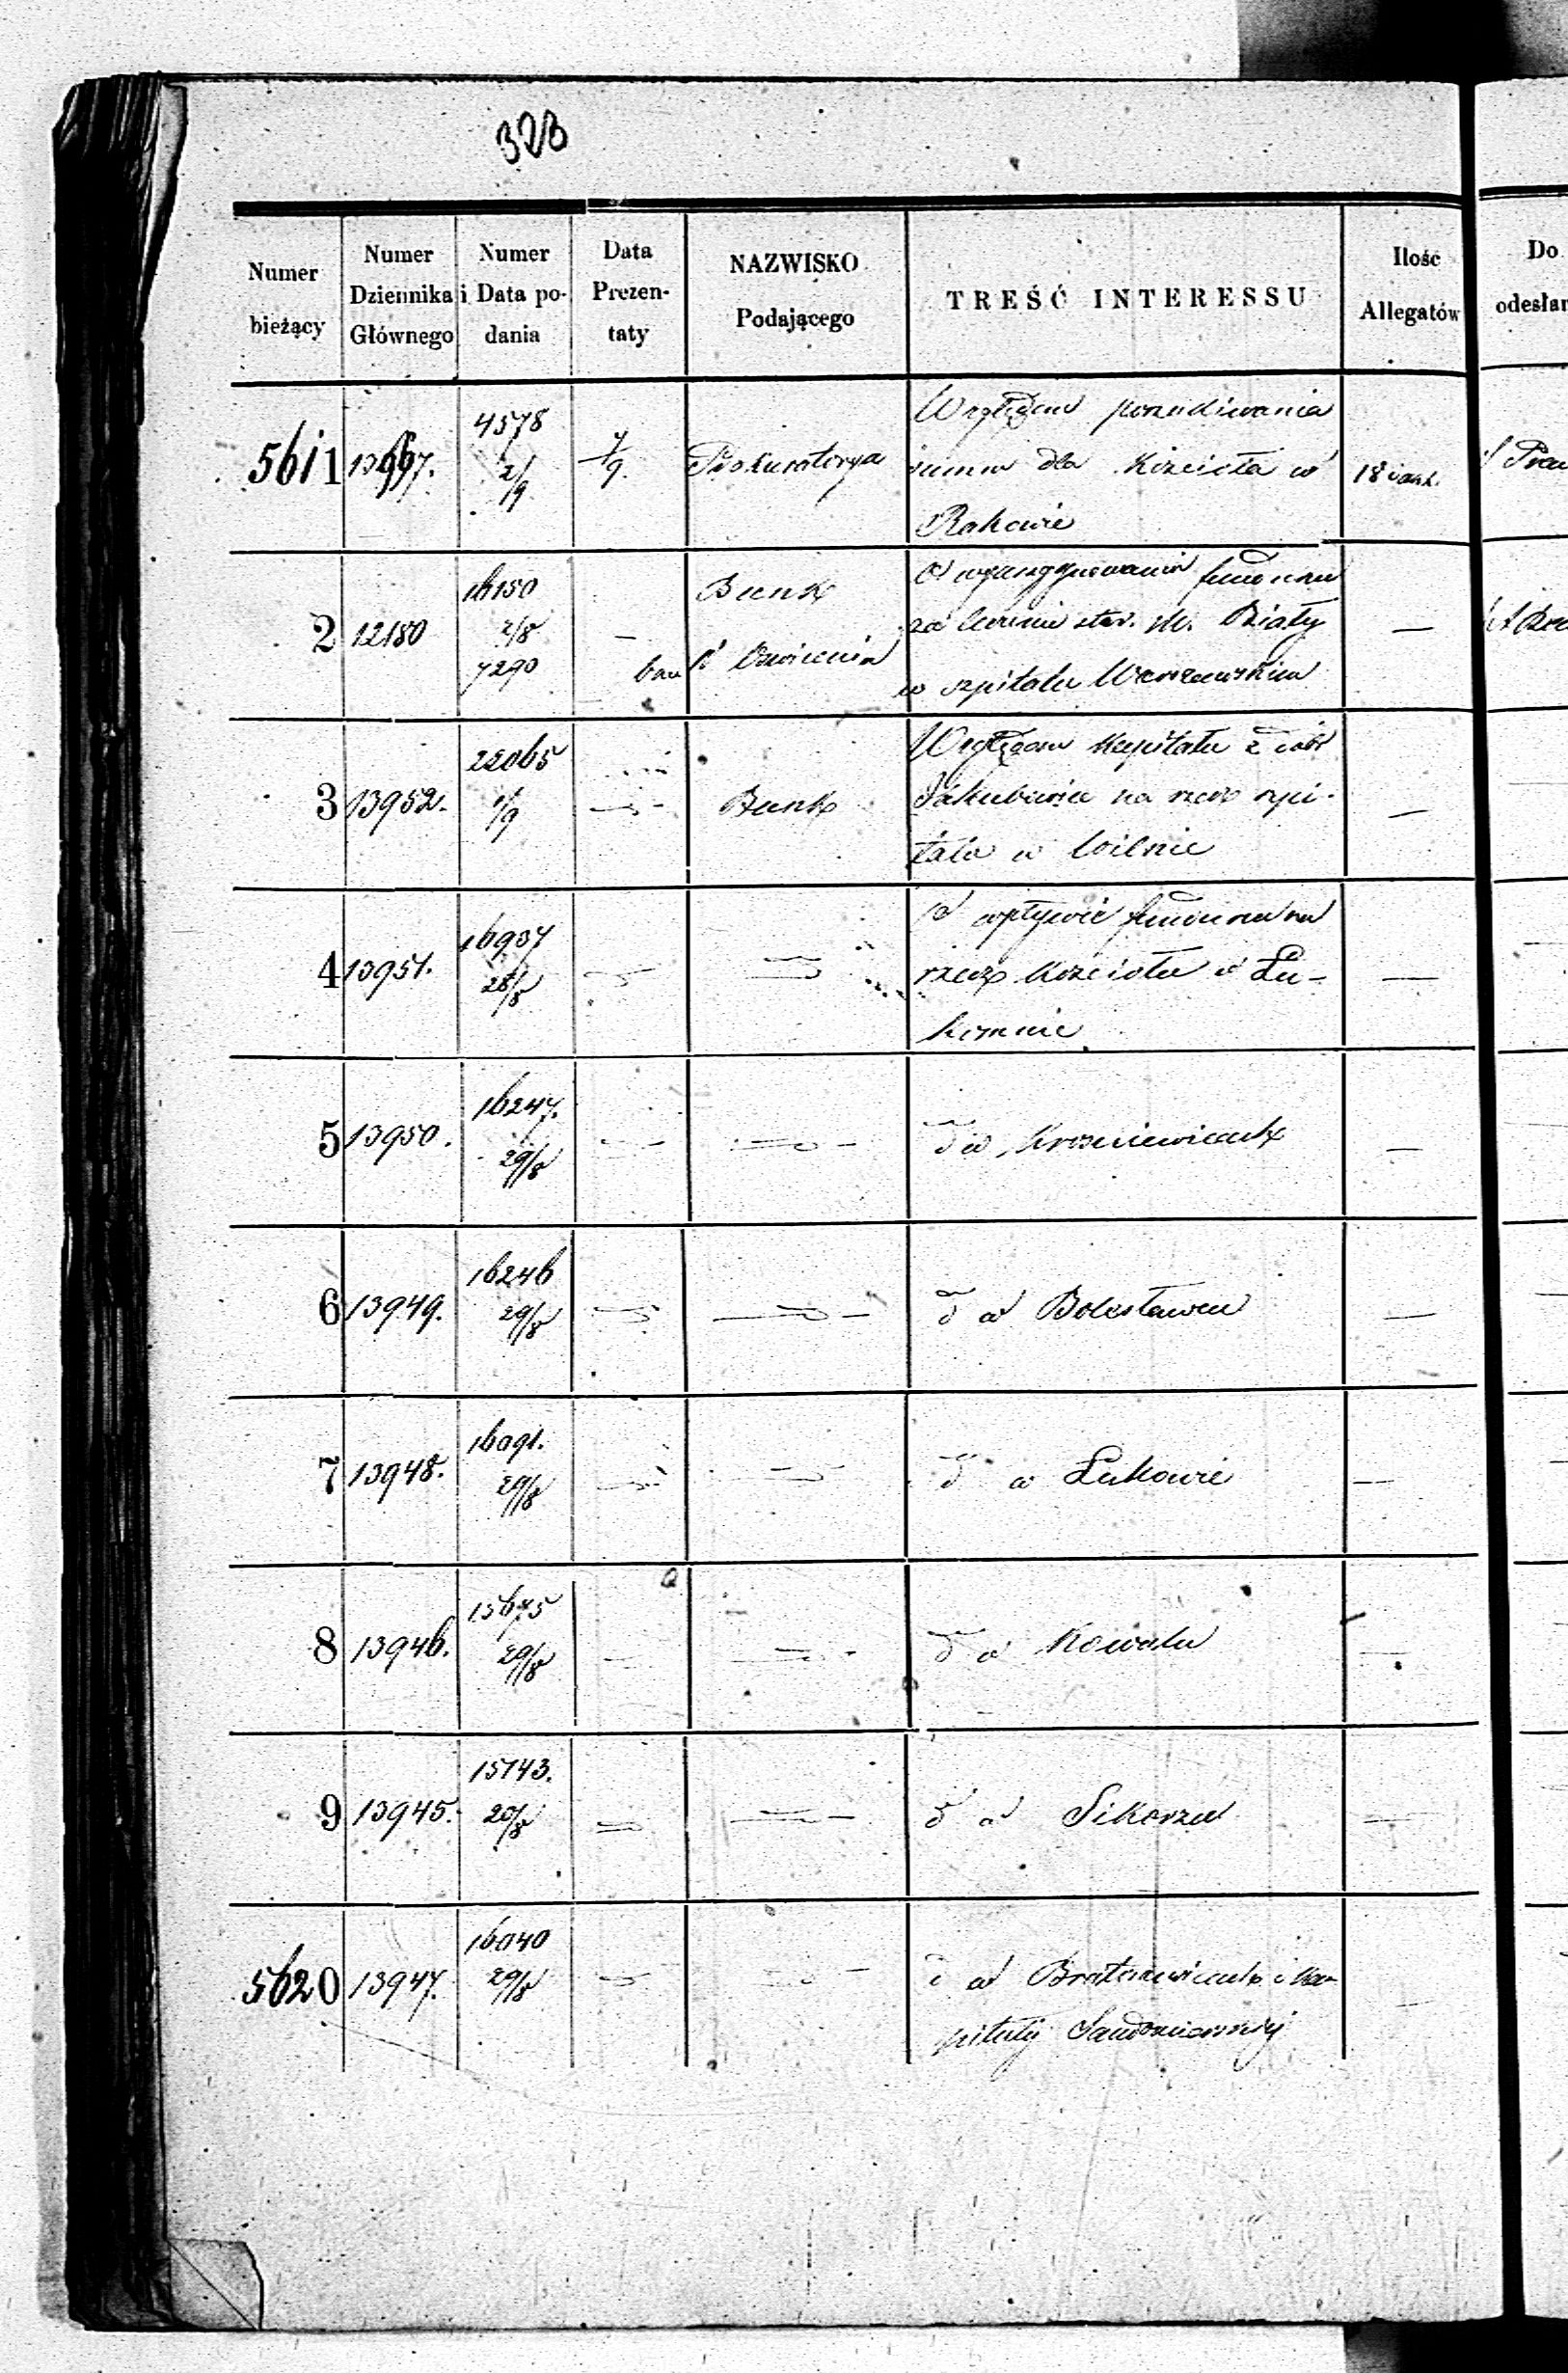 323
Numer bieżący
Numer Dziennika Głównego
Numer i Data podania
Data Prezentaty
NAZWISKO Podającego
TREŚĆ INTERESSU
Ilość Allegatów
Do odesłan
5611
4578
2/9
7/9
Prokuratorya
Względem poszukiwania
summ dla Kościoła w
Rakowie
18
2
12180
16150
2/8
7290
Bank
O wyassygnowanie funduszu
za leczenie M. Biały
w szpitalu Warszawskim
—
3
13952.
22065
1/9
Bank
Względem Kapitału z dóbr
na rzecz szpi-
tala w Wilnie
—
4
13951.
16937
28/8
O wpływie funduszu na
rzecz Kościoła w Łu-
komnie
—
5
13950.
16247.
29/8
do w Krośniewicach
—
6
13949.
16246
29/8
do w Bolesławcu
—
7
13948.
16091.
29/8
do w Łukowie
—
8
13946.
15675
29/8
do w Kowalu
—
9
13945.
15743.
20/8
do w Sikorzu
—
5620
13947.
16040
29/8
do w Bratoszewicach i Ka-
pituły Sandomierskiej